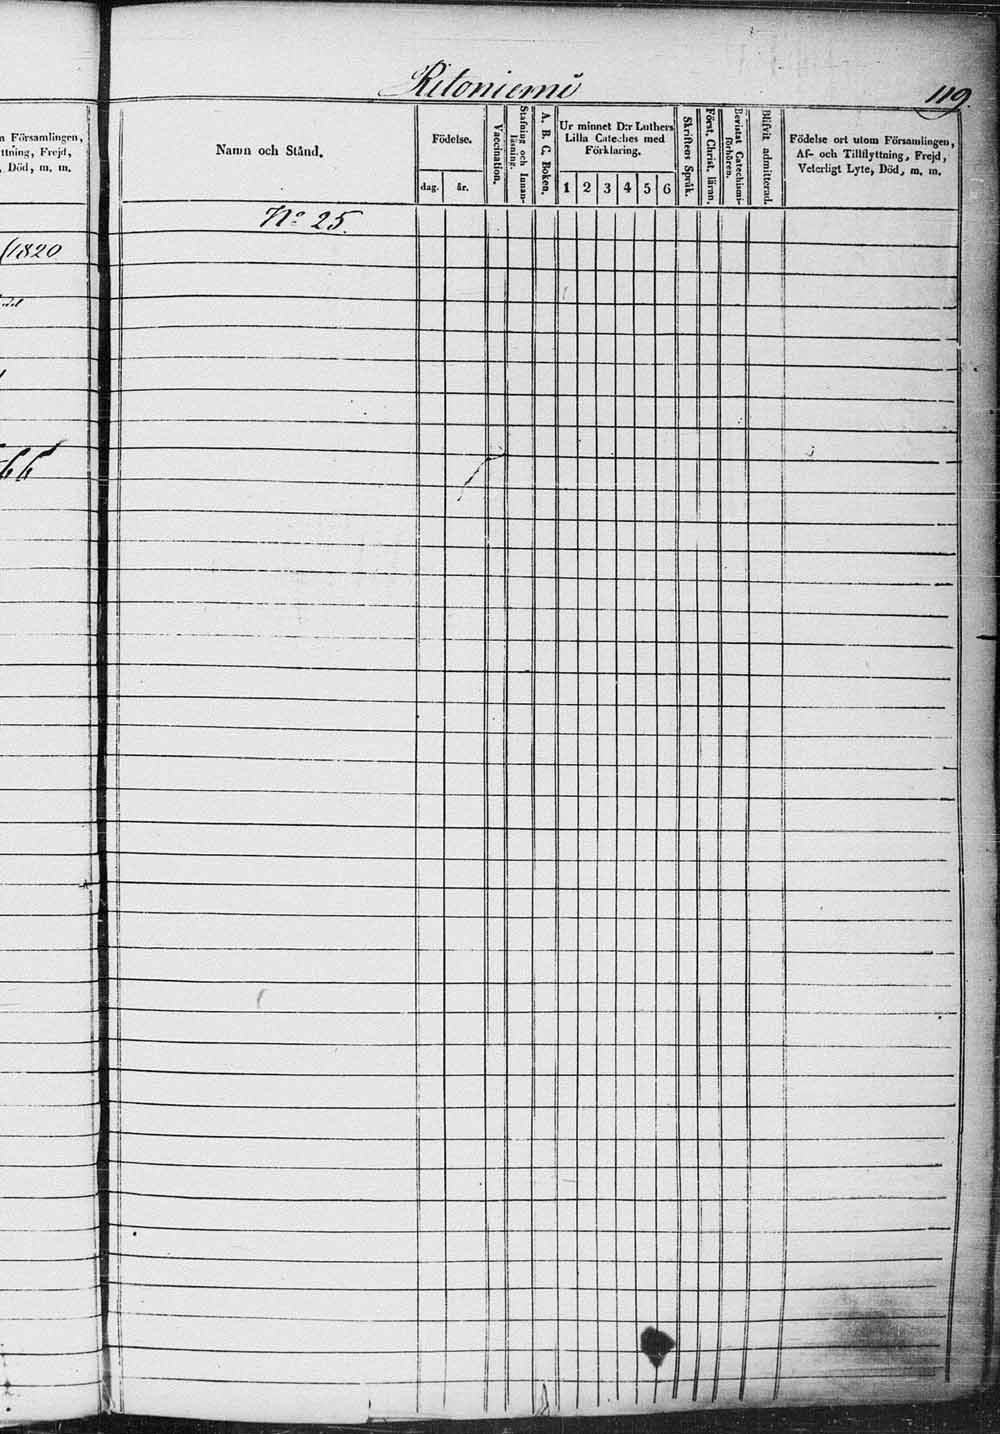 Ritoniemi
119.
n Församlingen,
ttning, Frejd,
, Död, m. m.
Namn och Stånd.
Födelse.
dag. år.
Vaccination.
Stafning och Innan-
läsning.
A. B. C. Boken.
Ur minnet D:r Luthers
Lilla Cateches med
Förklaring.
1 2 3 4 5 6
Skriftens Språk.
Först. Christ. lärun.
Bevistat Catechismi-
förhören.
Blifvit admitterad.
Födelse ort utom Församlingen,
Af- och Tillflyttning, Frejd,
Veterligt Lyte, Död, m. m.
No 25.
(1820
66